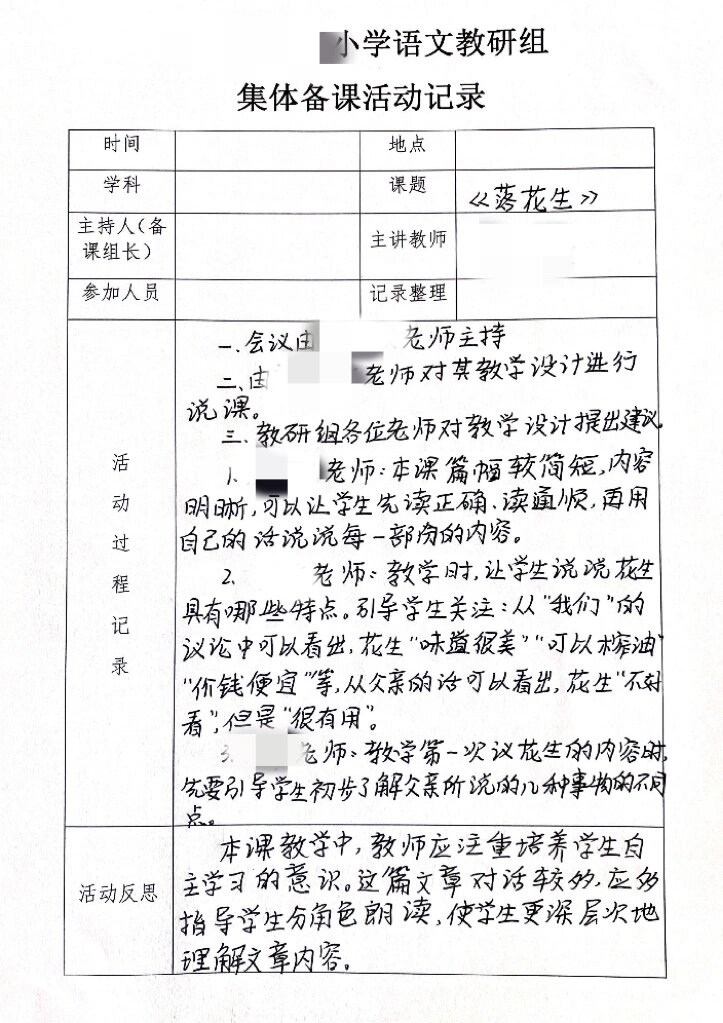 小学语文教研组
集体备课活动记录
时间 地点
学科 课题 《落花生》
主持人（备课组长） 主讲教师
参加人员 记录整理
活动过程记录
一、会议由 老师主持
二、由 老师对其教学设计进行
说课。
三、教研组各位老师对教学设计提出建议。
1、 老师：本课篇幅较简短，内容
明晰，可以让学生先读正确、读通顺，再用
自己的话说说每一部份的内容。
2、 老师：教学时，让学生说说花生
具有哪些特点。引导学生关注：从“我们”的
议论中可以看出，花生“味道很美”“可以榨油”
“价钱便宜”等，从父亲的话可以看出，花生“不好
看”，但是“很有用”。
3、 老师：教学第一次议花生的内容时，
先要引导学生初步了解父亲所说的几种事物的不同
点。
活动反思
本课教学中，教师应注重培养学生自
主学习的意识。这篇文章对话较多，应多
指导学生分角色朗读，使学生更深层次地
理解文章内容。